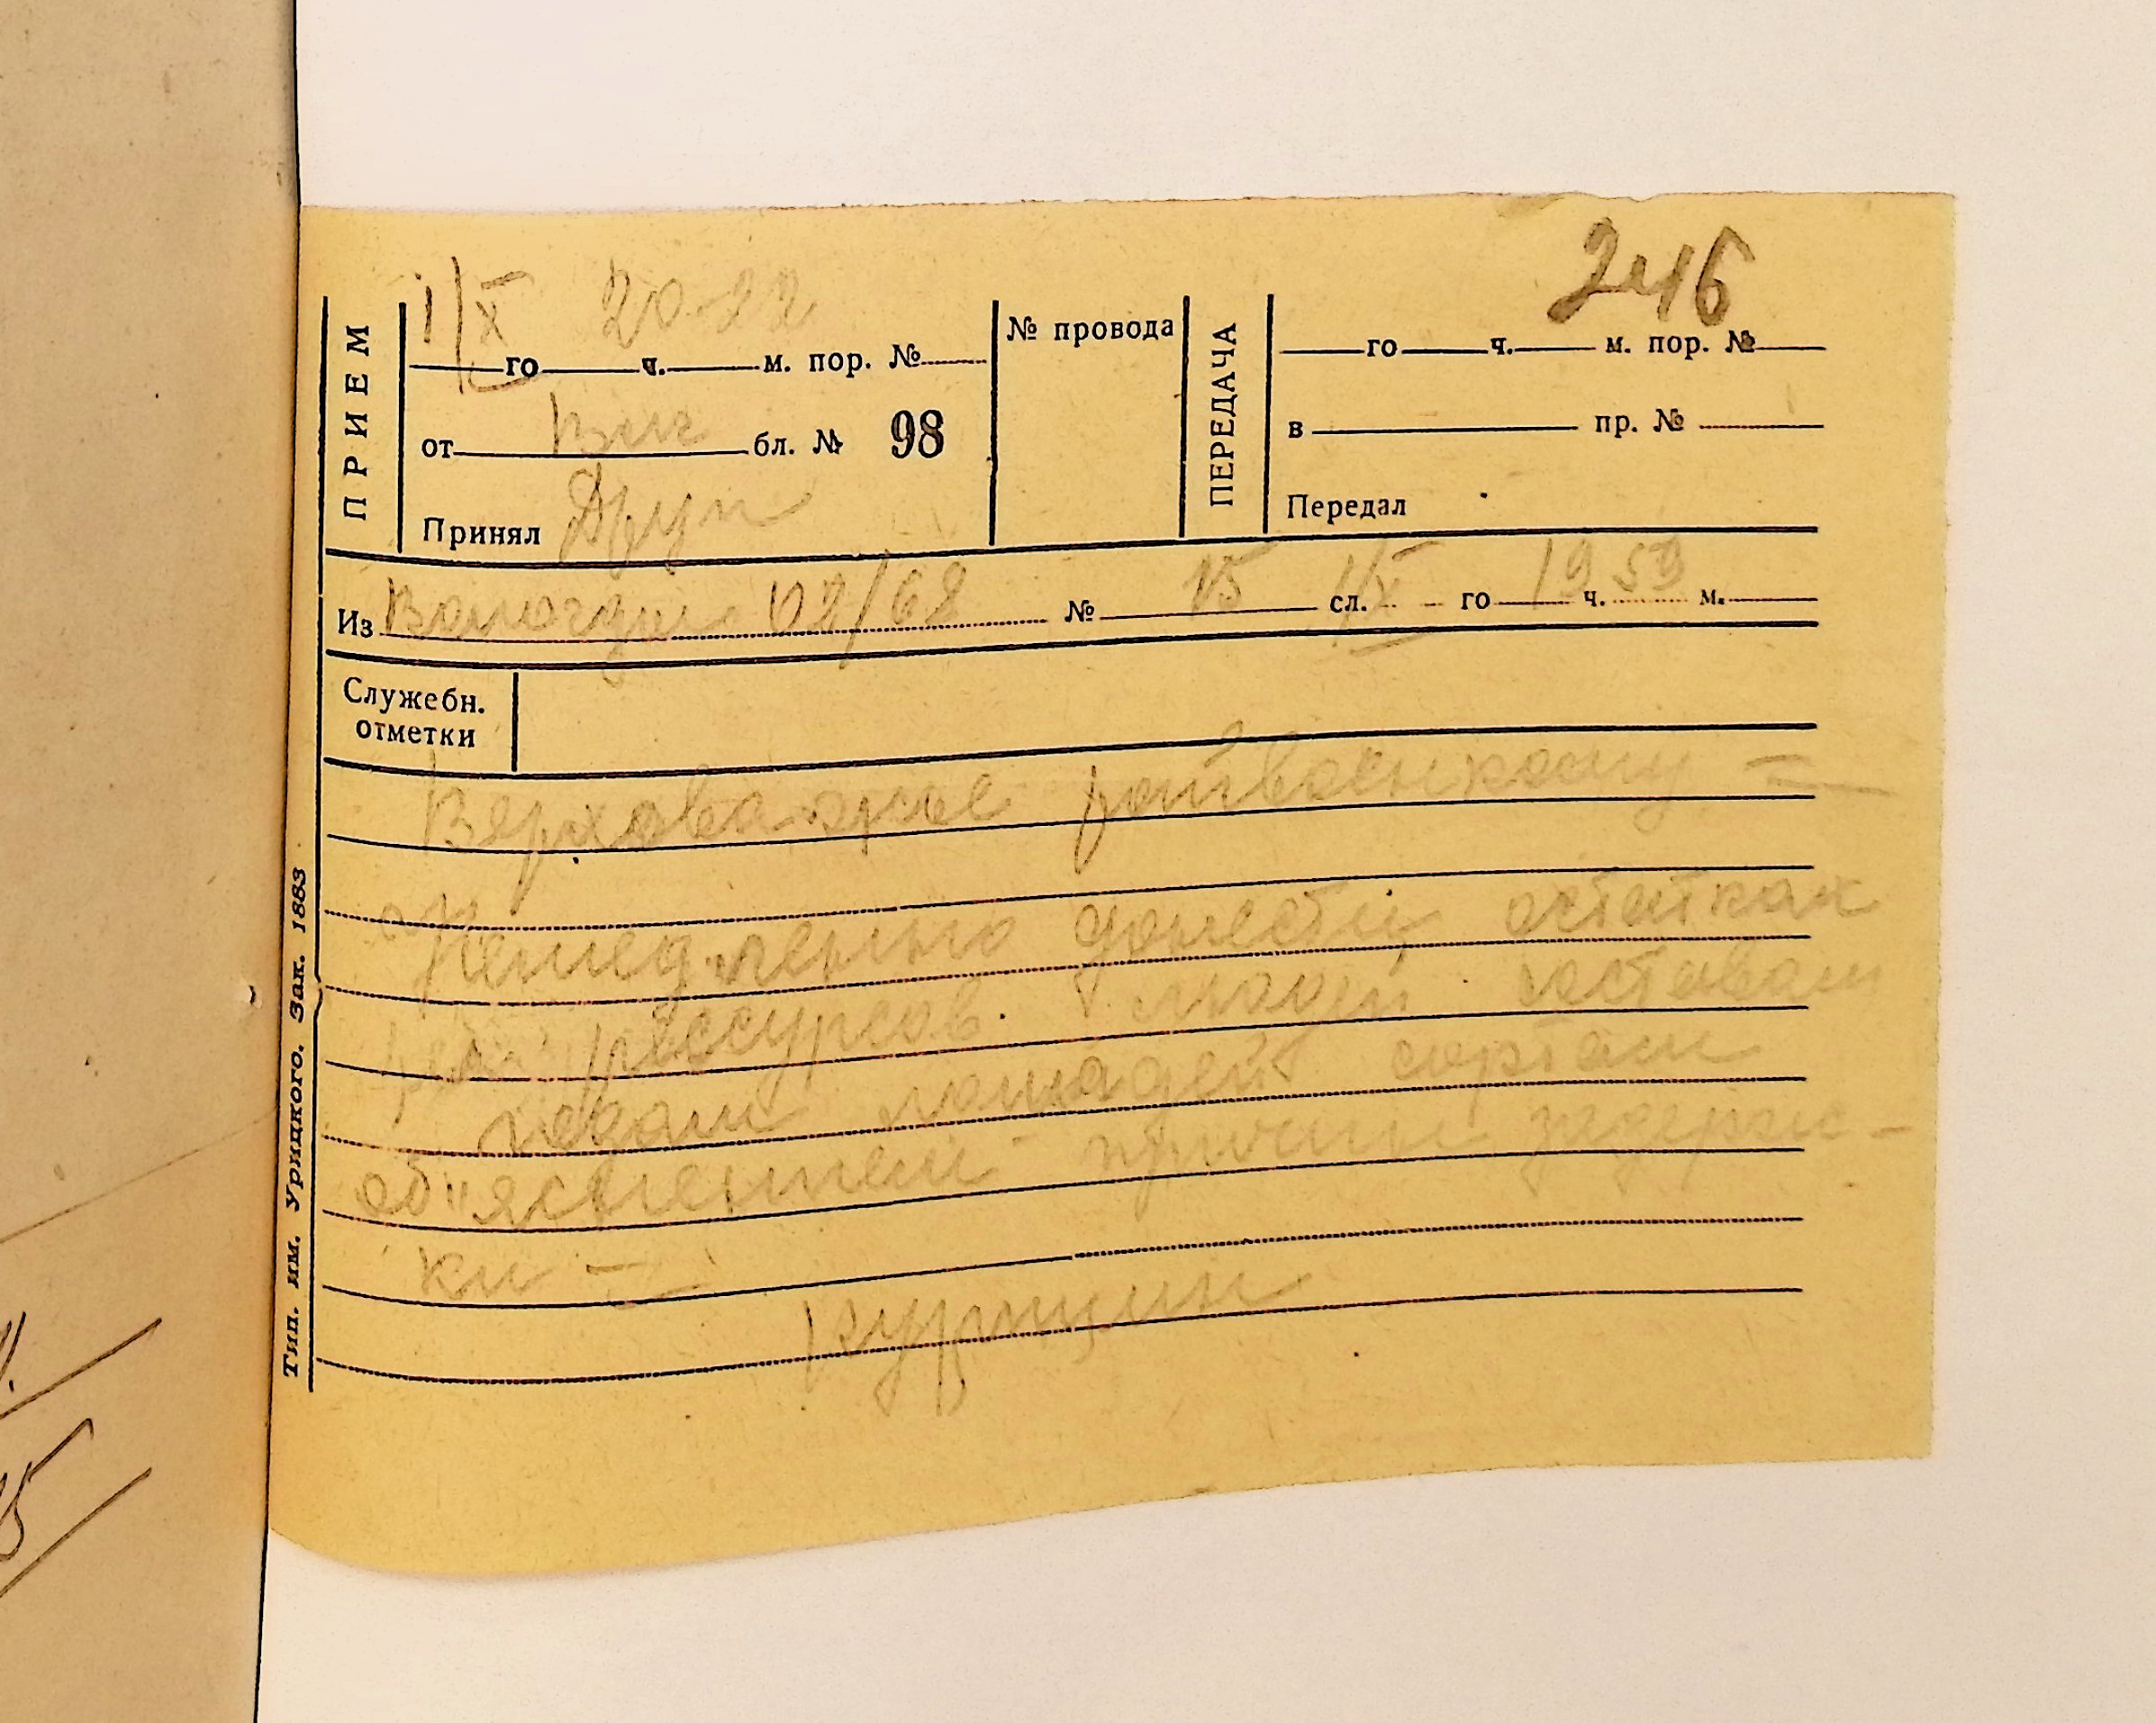 246
1/X 20-22
ПРИЕМ
го ч. м. пор. №
№ провода
ПЕРЕДАЧА
го ч. м. пор. №
от Влг бл. № 98
в пр. №
Принял
Передал
Из Вологды 02/62 № 15 сл. 1/X го 19 ч. 59 м.
Служебн.
отметки
Верховажье райвоенкому =
Немедленно донести остатках
ресурсов людей составам
годам лошадей сортам
об"яснением причин задерж-
ки =
Курицин
Тип. им. Урицкого. Зак. 1883